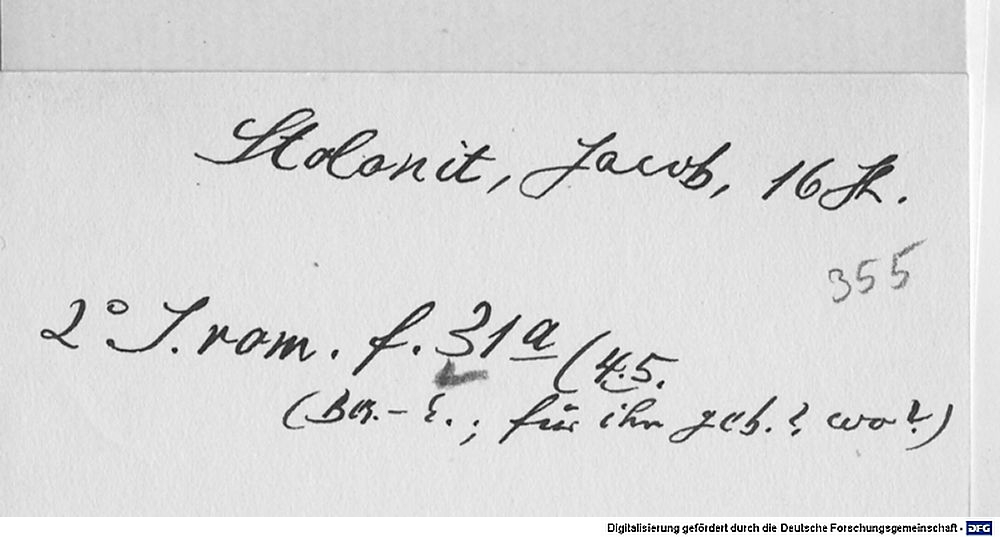 Stolonit, Jacob, 16 Jh.
355
2° J. rom. f. 31a (4.5.
(Bes.-E.; für ihn geb.? wo?)
Digitalisierung gefördert durch die Deutsche Forschungsgemeinschaft - DFG